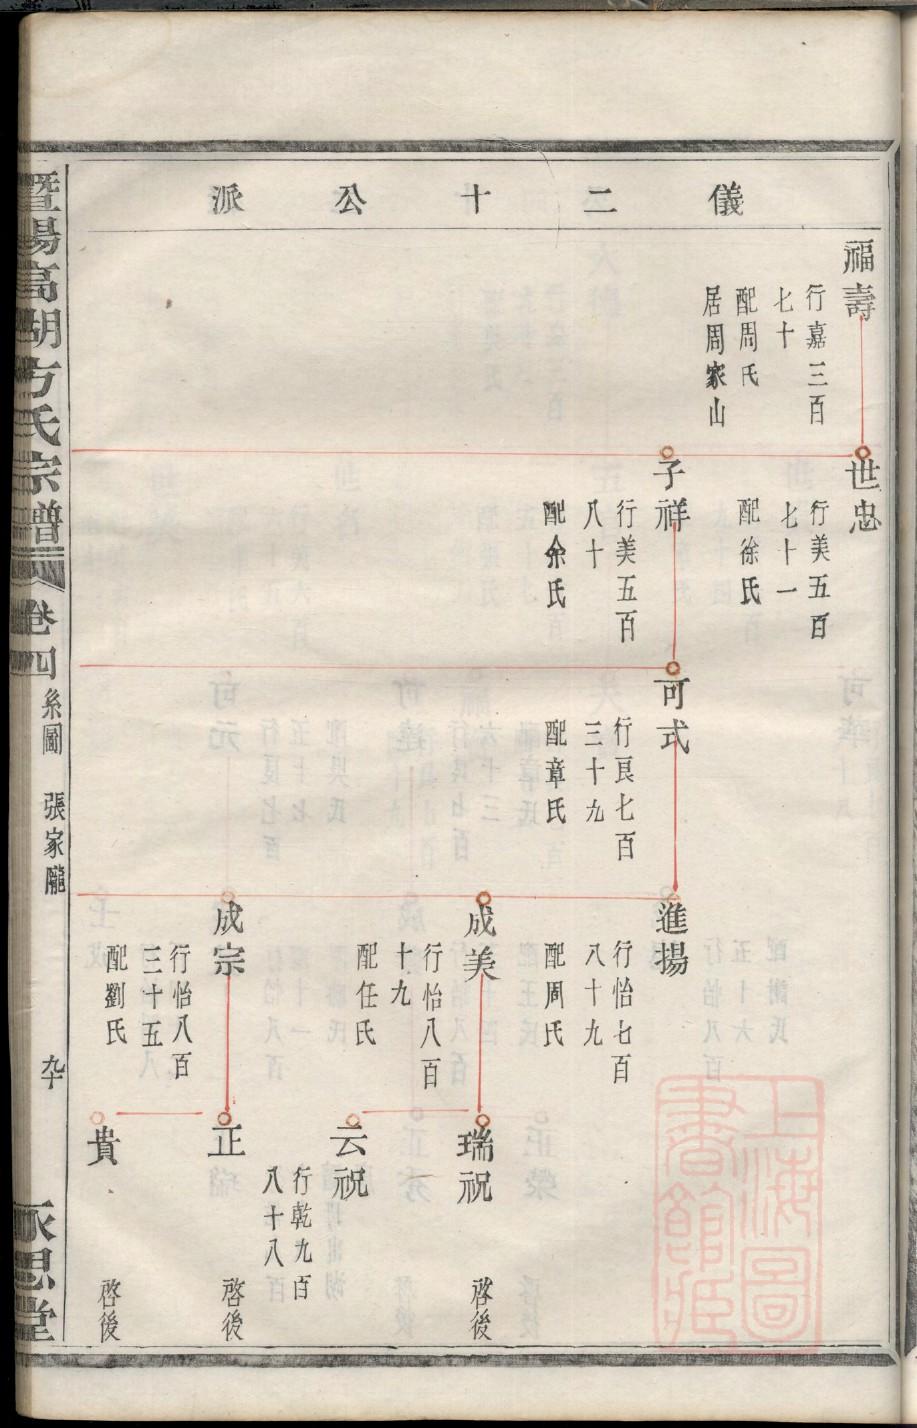 儀二十公派
福壽
行嘉三百
七十
配周氏
居周家山
世忠
行美五百
七十一
配徐氏
子祥
行美五百
八十
配余氏
可式
行良七百
三十九
配章氏
進揚
行怡七百
八十九
配周氏
成美
行怡八百
十九
配任氏
成宗
行怡八百
三十五
配劉氏
瑞祝
啓後
云祝
行乾九百
八十八
正
啓後
貴
啓後
暨陽高湖方氏宗譜
卷四
系圖
張家隴
九十
永思堂
上海圖
書館藏